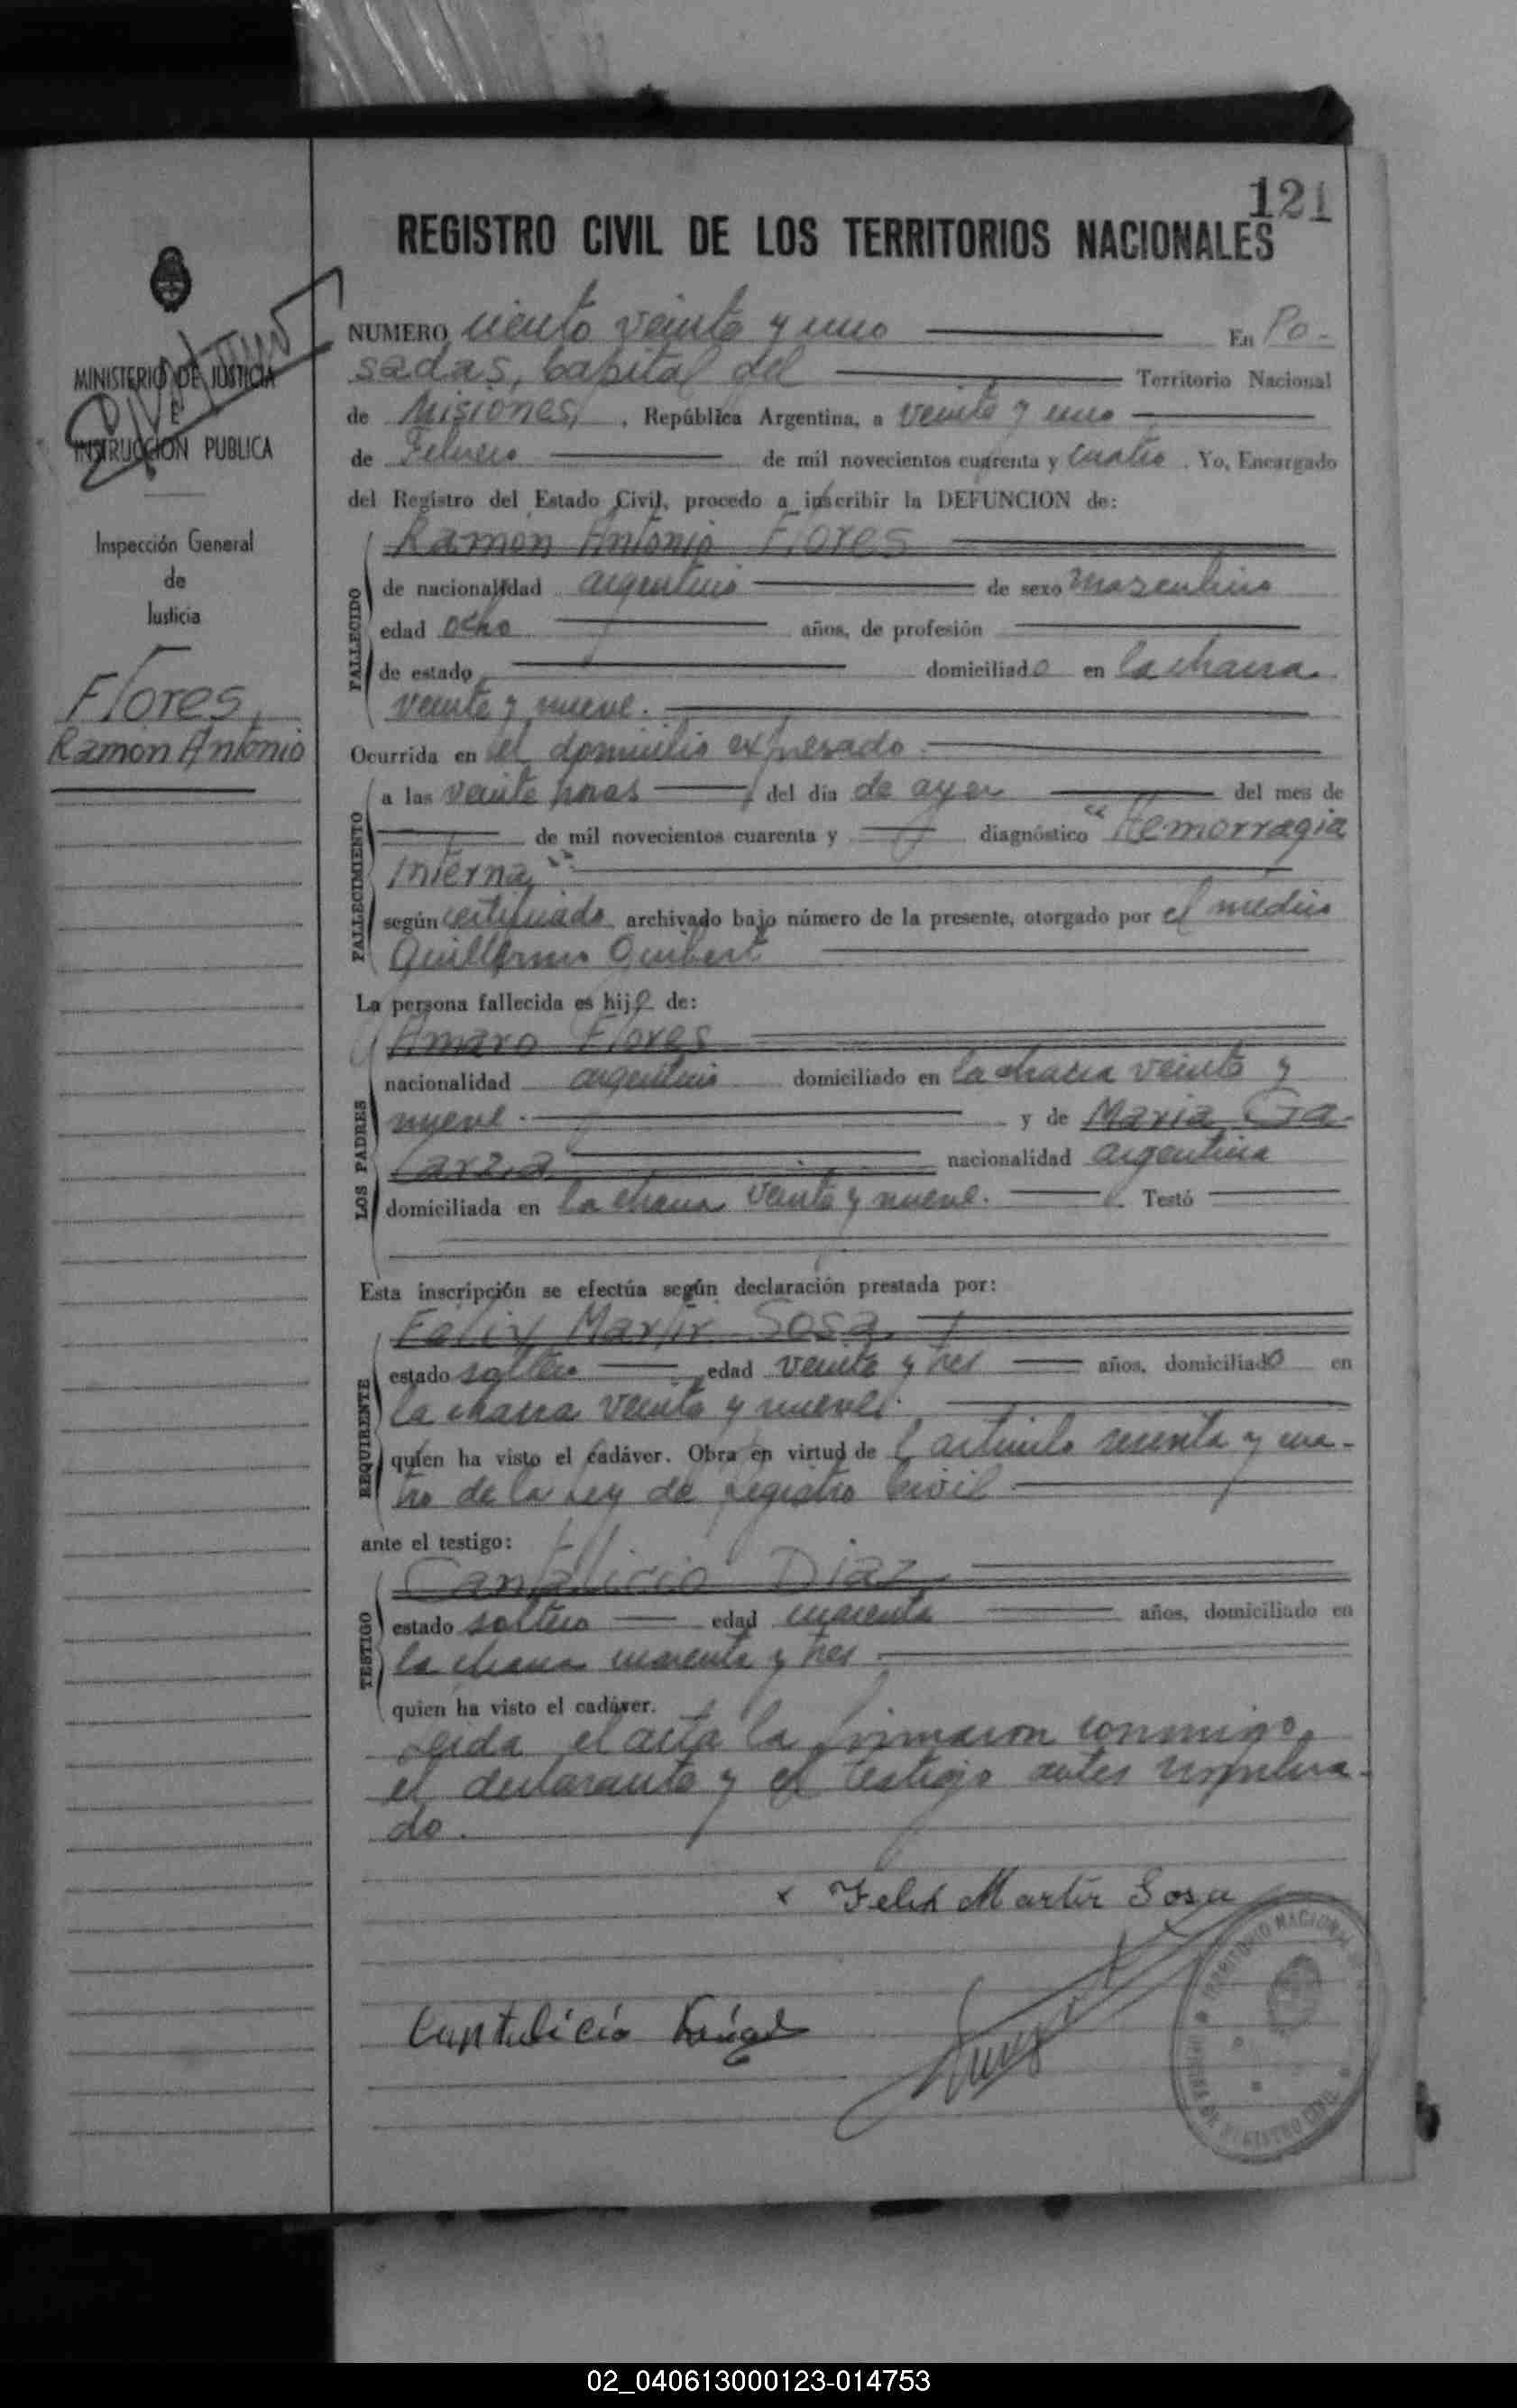 121
REGISTRO CIVIL DE LOS TERRITORIOS NACIONALES
MINISTERIO DE JUSTICIA
E
INSTRUCCION PUBLICA
Inspección General
de
Justicia
Flores,
Ramon Antonio
NUMERO ciento veinte y uno En Po-
sadas, Capital del Territorio Nacional
de Misiones, , República Argentina, a veinte y uno
de Febrero de mil novecientos cuarenta y cuatro . Yo, Encargado
del Registro del Estado Civil, procedo a inscribir la DEFUNCION de:
FALLECIDO
Ramon Antonio Flores
de nacionalidad argentino de sexo masculino
edad ocho años, de profesión
de estado domiciliado en la chacra
veinte y nueve.
Ocurrida en el domicilio expresado.
FALLECIMIENTO
a las veinte horas del día de ayer del mes de
de mil novecientos cuarenta y diagnóstico "Hemorragia
Interna"
según certificado archivado bajo número de la presente, otorgado por el médico
Guillermo Guibert
La persona fallecida es hijo de:
LOS PADRES
Amaro Flores
nacionalidad argentino domiciliado en la chacra veinte y
nueve. y de Maria Ga-
larza nacionalidad argentina
domiciliada en la chacra veinte y nueve. Testó
Esta inscripción se efectúa según declaración prestada por:
REQUIRENTE
Felix Martir Sosa
estado soltero edad veinte y tres años, domiciliado en
la chacra veinte y nueve.
quien ha visto el cadáver. Obra en virtud de l artículo sesenta y cua-
tro de la Ley de Registro Civil
ante el testigo:
TESTIGO
Cantalicio Diaz
estado soltero edad cuarenta años, domiciliado en
la chacra cuarenta y tres
quien ha visto el cadáver.
Leida el acta la firmaron conmigo,
el declarante y el testigo antes nombra-
do.
x Felix Martir Sosa
Cantalicio
TERRITORIO NACIONAL
OFICINA DE REGISTRO CIVIL
02_040613000123-014753